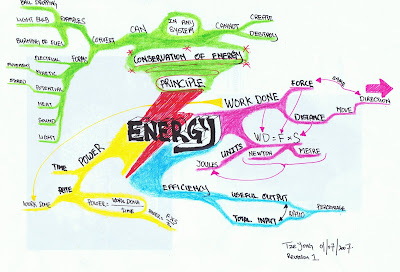 BALL DROPPING
LIGHT BULB
EXAMPLES
BURNING OF FUELS
CONVERT
CAN
IN ANY
SYSTEM
CANNOT
CREATE
DESTROY
ELECTRICAL
FORMS
MOVEMENT
KINETIC
STORED
POTENTIAL
HEAT
SOUND
LIGHT
CONSERVATION OF ENERGY
PRINCIPLE
ENERGY
WORK DONE
FORCE
SAME
DIRECTION
DISTANCE
MOVE
WD = F x S
UNITS
NEWTON
METRE
JOULES
POWER
TIME
RATE
WORK DONE
POWER = WORK DONE
TIME
EFFICIENCY
USEFUL OUTPUT
TOTAL INPUT
RATIO
PERCENTAGE
Revision 1